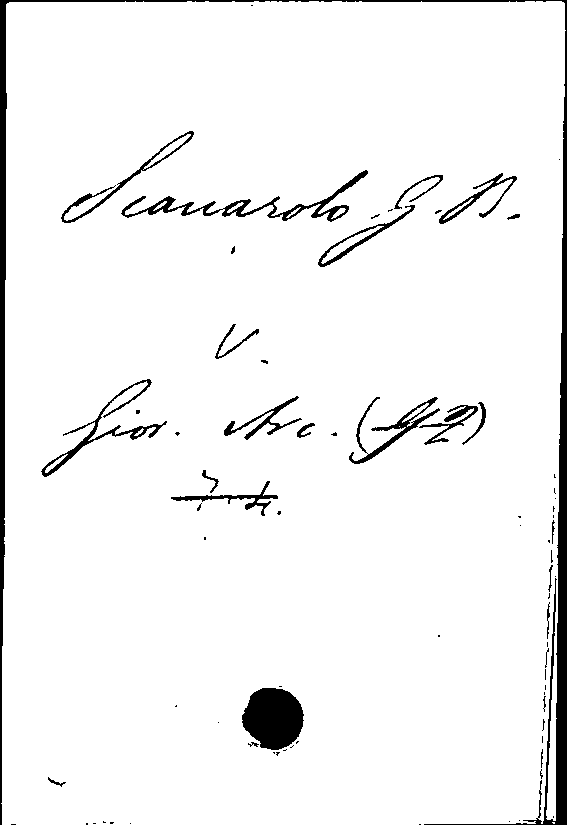 Scanarolo G. B.
V.
Gior. Arc. (
7 4.